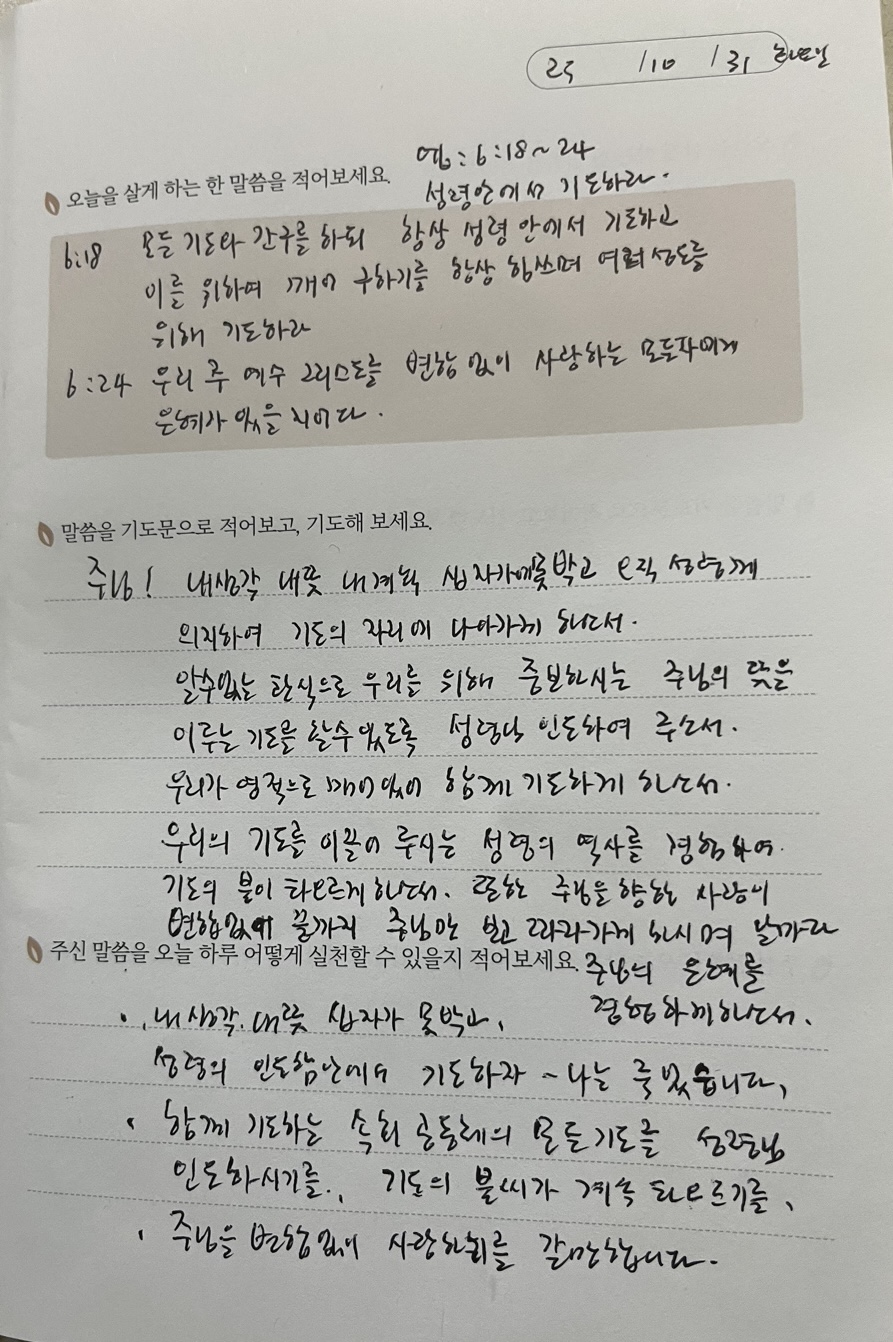 25 /10 /31 화요일
엡: 6:18~24
성령안에서 기도하라.
오늘을 살게 하는 한 말씀을 적어보세요.
6:18 모든 기도와 간구를 하되 항상 성령 안에서 기도하고
이를 위하여 깨어 구하기를 항상 힘쓰며 여러 성도를
위해 기도하라
6:24 우리 주 예수 그리스도를 변함 없이 사랑하는 모든자에게
은혜가 있을 지어다.
말씀을 기도문으로 적어보고, 기도해 보세요.
주님! 내생각 내뜻 내계획 십자가에못박고 오직 성령께
의지하여 기도의 자리에 나아가게 하소서.
알수없는 탄식으로 우리를 위해 중보하시는 주님의 뜻을
이루는 기도를 할수 있도록 성령님 인도하여 주소서.
우리가 영적으로 깨어있어 함께 기도하게 하소서.
우리의 기도를 이끌어 주시는 성령의 역사를 경험하여
기도의 불이 타오르게하소서. 또한 주님을 향한 사랑이
변함없이 끝까지 주님만 보고 따라가게 하시며 날마다
주님의 은혜를
경험하게하소서.
주신 말씀을 오늘 하루 어떻게 실천할 수 있을지 적어보세요.
· 내 생각. 내뜻 십자가 못박고,
성령의 인도함안에서 기도하자 ~ 나는 죽었습니다,
· 함께 기도하는 속회 공동체의 모든기도를 성령님
인도하시기를., 기도의 불씨가 계속 타오르기를,
· 주님을 변함없이 사랑하기를 갈망합니다.